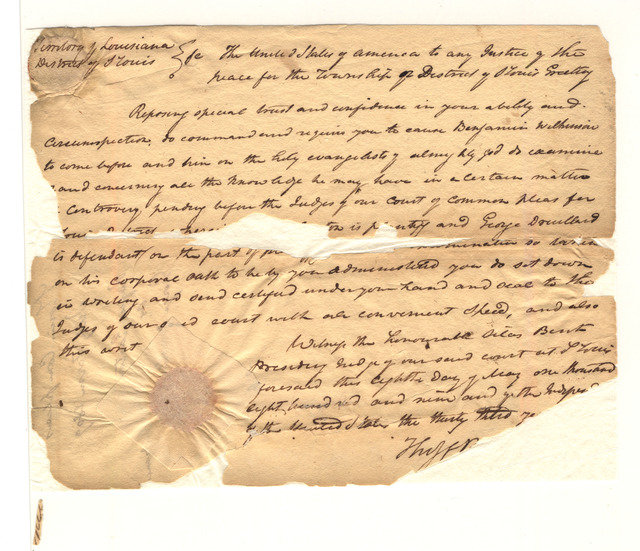 Territory of Louisiana
District of St Louis
Sc The United States of america to any Justice of the
peace for the Township or District of St Louis Greeting
Reposing special trust and confidence in your ability and
circumspection, do command and require you to cause Benjamin Wilkinson
to come before and him on the holy evangelists of almighty god do examine
and concerning all the knowledge he may have in a certain matter
controversy pending before the Judges of our court of common pleas for
is plaintiff and George Drouillard
is defendant on the part of so taken
on his corporal oath to be by you administered you do set down
in writing and send certified under your hand and seal to the
Judges of our court with all convenient speed, and also
this writ
Witness the honourable Silas Bent
Presiding Judge of our said court at St Louis
foresaid this eighth Day of May one thousand
eight hundred and nine and of the Independ
of the United States the thirty third